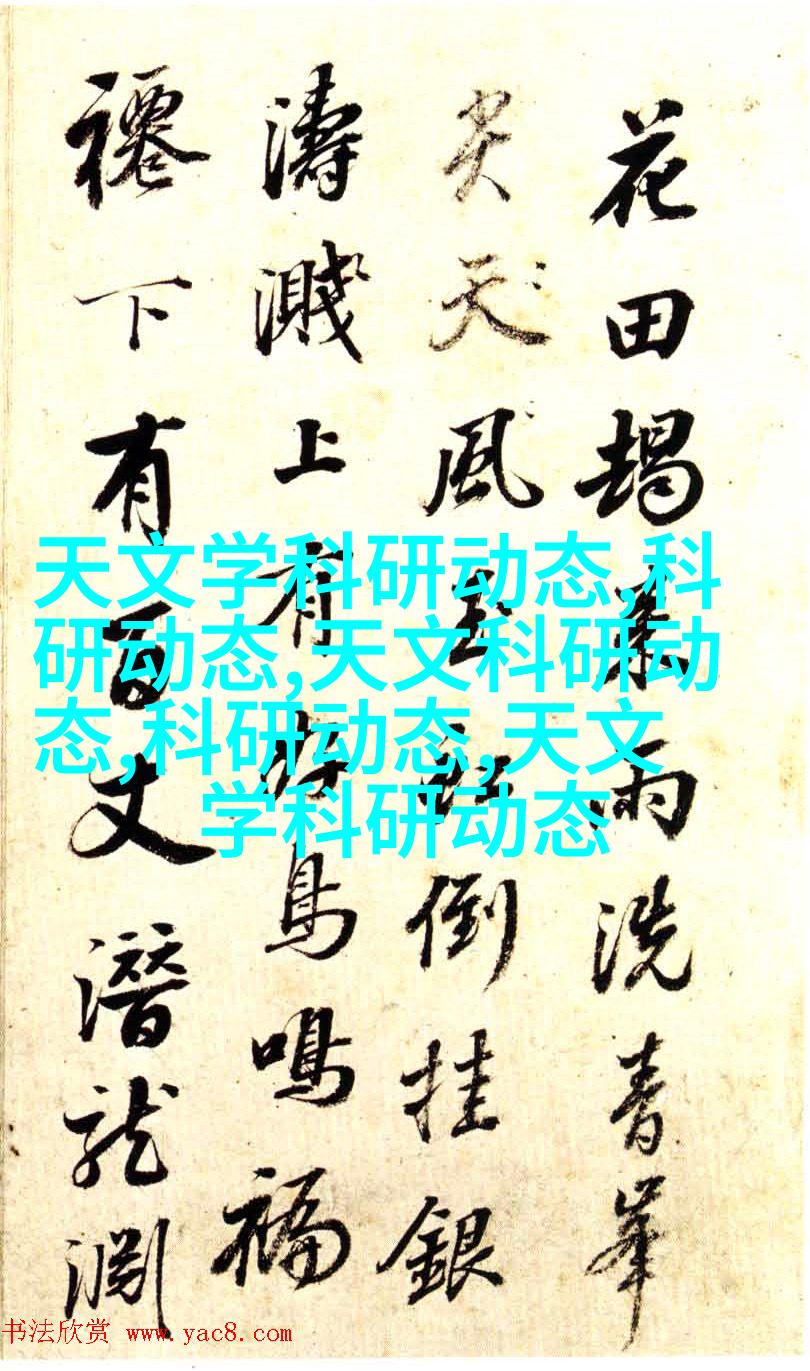 花田雨洗青峯
天風玉虹倒挂銀
濤濺上有好鳥鳴福
下有百丈潛龍淵
天文学科研动态,科
研动态,天文科研动
态,科研动态,天文
学科研动态
书法欣赏 www.yac8.com